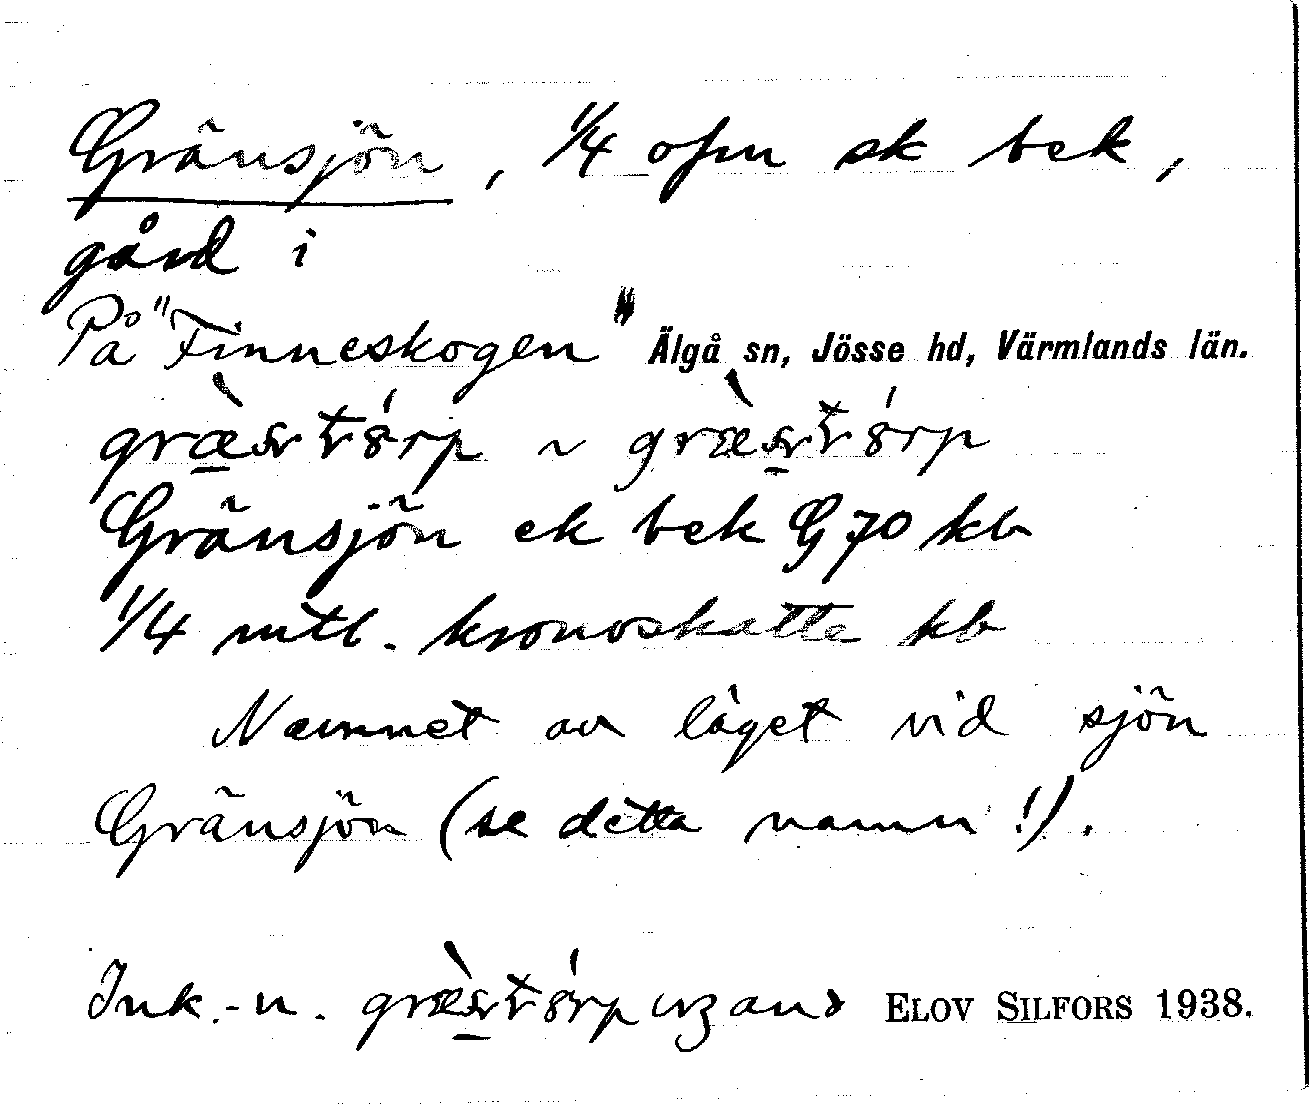 Gränsjön, 1/4 ofm sk bek,
gård i
På "Finneskogen" Älgå sn, Jösse hd, Värmlands län.
Gränsjön ek bek G 70 kb
1/4 mtl. kronoskatte kb
Namnet av läget vid sjön
Gränsjön (se detta namn!).
Ink.-n. ELOV SILFORS 1938.